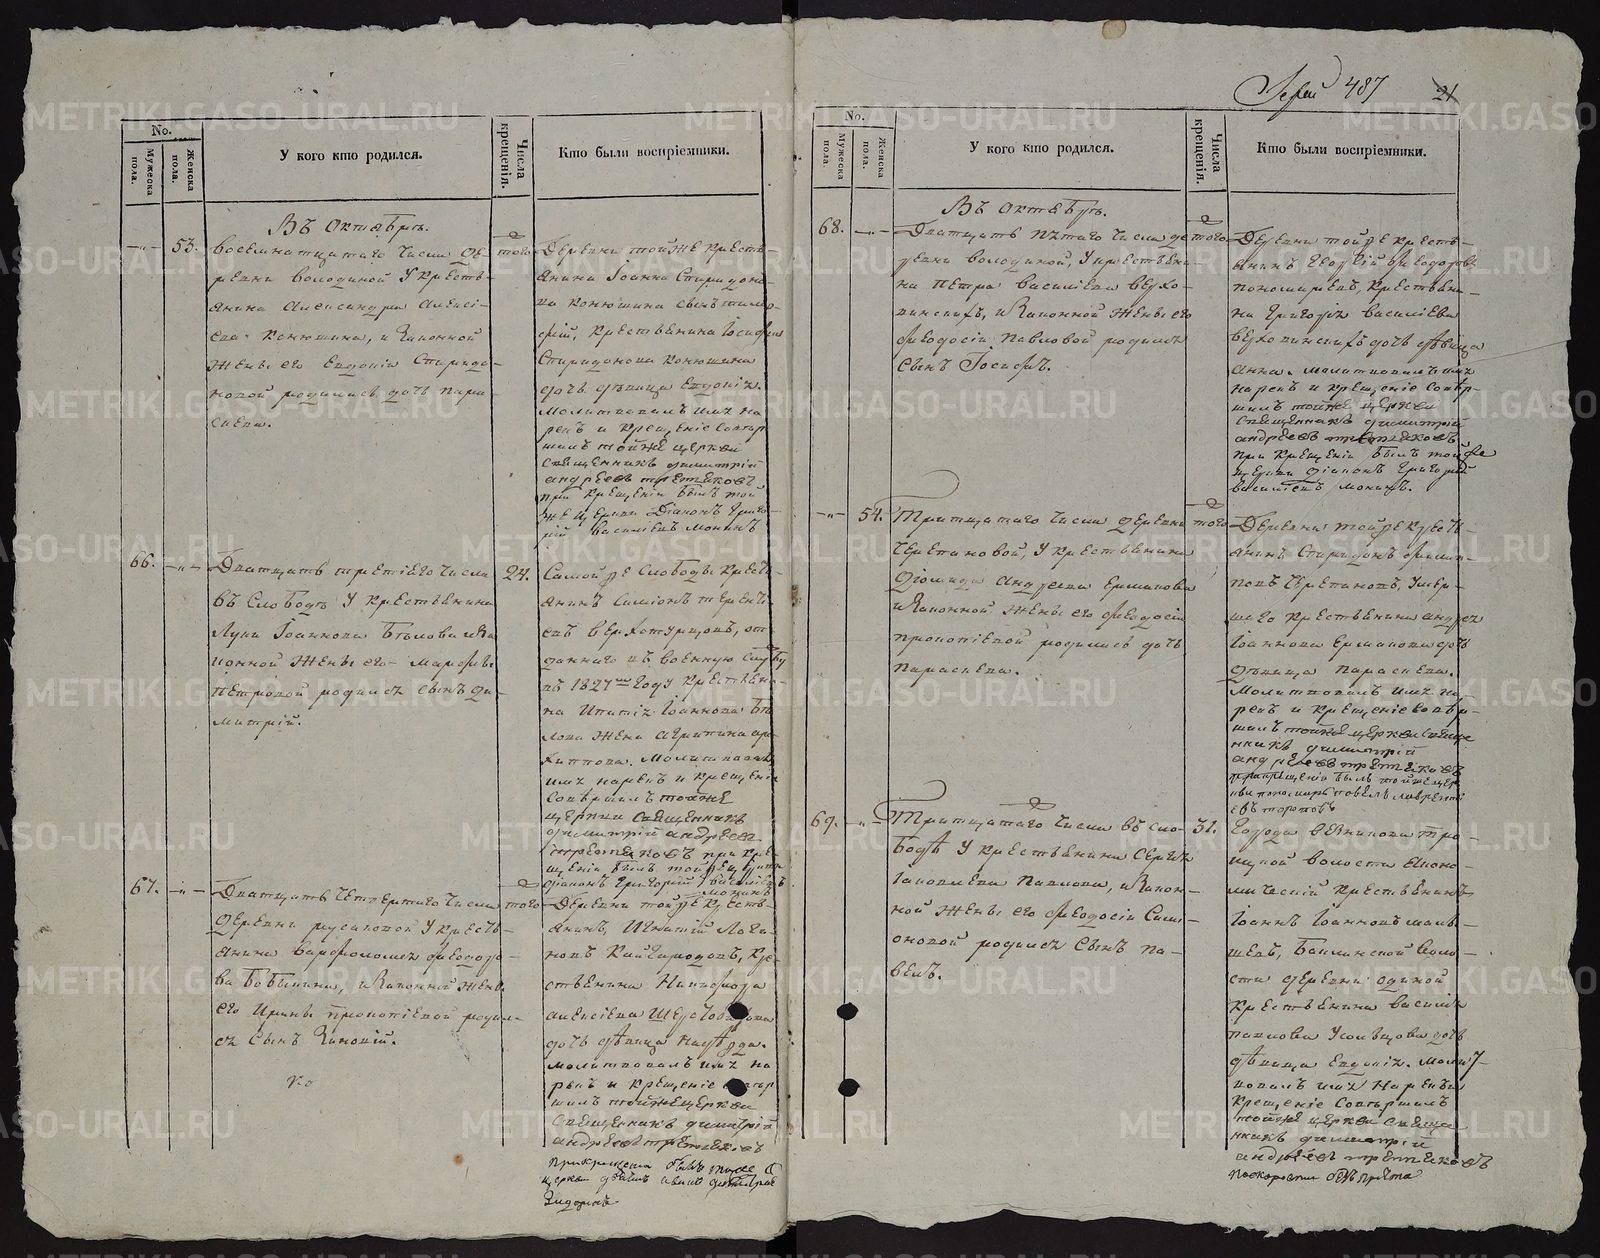 No.
Мужеска пола.
Женска пола.
У кого кто родился.
Числа крещенія.
Кто были воспріемники.
Въ Октябрѣ.
53.
восемнатцатаго числа де-
ревни володиной У кресть-
янина Александра Алексі-
ева Конюшина, и Законной
жены его Евдокіи Спиридо-
новой родилась дочь Пара-
скева.
того
Деревни тойже кресть-
янина Іоанна Спиридоно-
ва Конюшина сынъ тимо-
фѣй, крестьянина Іосифа
Спиридонова Конюшина
дочь дѣвица Евдокія.
Молитвовалъ имя на
рекъ и крещеніе совер
шилъ тойже церкви
священникъ димитрій
андреевъ третьяковъ
при крещеніи былъ той
же церкви Діаконъ Григо-
рій василіевъ мокинъ
66.
Дватцать третіяго числа
въ Слободѣ У крестьянина
Луки Іоаннова Бѣлова и За
конной жены его Марфы
Петровой родился сынъ Ди-
митрій.
24.
Самой же Слободы кресть-
янинъ Симіонъ терент-
евъ верхотурцовъ, от
даннаго въ военную служ бу
въ 1827мъ году крестьяни-
на Ипатія Іоаннова Бѣ
лова жена агрипина ар-
хиппова. Молитвовалъ
имя нарекъ и крещеніе
совершилъ тойже
церкви священникъ
димитрій андреевъ
третьяковъ при кре-
щеніи былъ тойже церкви
діаконъ Григорій василіевъ
мокинъ
67.
Дватцать четвертаго числа
деревни русаковой У кресть-
янина варфоломея федоро-
ва Бобыкина, и Законной жены
его Ирины Прокопіевой родил-
ся сынъ Зиновій.
того
Деревни тойже кресть-
янинъ, Игнатій Лога-
новъ Кайгородовъ, кре-
стьянина Никифора
алексіева
дочь дѣвица надѣжда.
молитвовалъ имя на
рекъ и крещеніе совер
шилъ тойже церкви
священникъ димитрій
андреевъ третьяковъ
при крещеніи былъ тойже
церкви
487
21
No.
Мужеска пола.
Женска пола.
У кого кто родился.
Числа крещенія.
Кто были воспріемники.
Въ Октябрѣ.
68.
Дватцать пятаго числа де-
ревни володиной, У крестьяни-
на Петра Василіева верхо-
винскихъ, и Законной жены его
Феодосіи Павловой родился
сынъ Іосифъ.
того
Деревни тойже кресть-
янинъ Георгій Феодоровъ
пономаревъ, крестьяни-
на Григорія Василіева
верховинскихъ дочь дѣвица
анна. молитвовалъ имя
нарекъ и крещеніе совер-
шилъ тойже церкви
священникъ димитрій
андреевъ третьяковъ
при крещеніи былъ тойже
церкви діаконъ Григорій
василіевъ мокинъ.
54.
Тритцатаго числа деревни
Черепановой, У крестьянина
Діомида Андреева Ермакова
и Законной жены его феодосіи
прокопіевой родилась дочь
Параскева.
того
Деревни тойже кресть-
янинъ Спиридонъ филип-
повъ Черепановъ, Умер-
шаго крестьянина андрея
Іоаннова Ермакова дочь
дѣвица Параскева.
Молитвовалъ имя на
рекъ и крещеніе совер-
шилъ тойже церкви свяще
нникъ димитрій
андреевъ третьяковъ
при крещеніи былъ тойже цер
кви пономарь павелъ лаврентi
евъ топорковъ
69.
Тритцатаго числа въ сло-
бодѣ У крестьянина Сергея
Іаковлева Павлова, и Закон-
ной жены его Феодосіи Сими-
оновой родился сынъ Па-
велъ.
31.
Города Вязникова тро-
ицкой волости Эконо-
мическій крестьянинъ
Іоаннъ Іоанновъ малы-
шевъ, Баклинской воло-
сти деревни одиной
крестьянина василія
павлова Усольцова дочь
дѣвица Евдокія. молит-
вовалъ имя нарекъ и
крещеніе совершилъ
тойже церкви свяще
нникъ димитрій
андреевъ третьяковъ
поскорости безъ причта